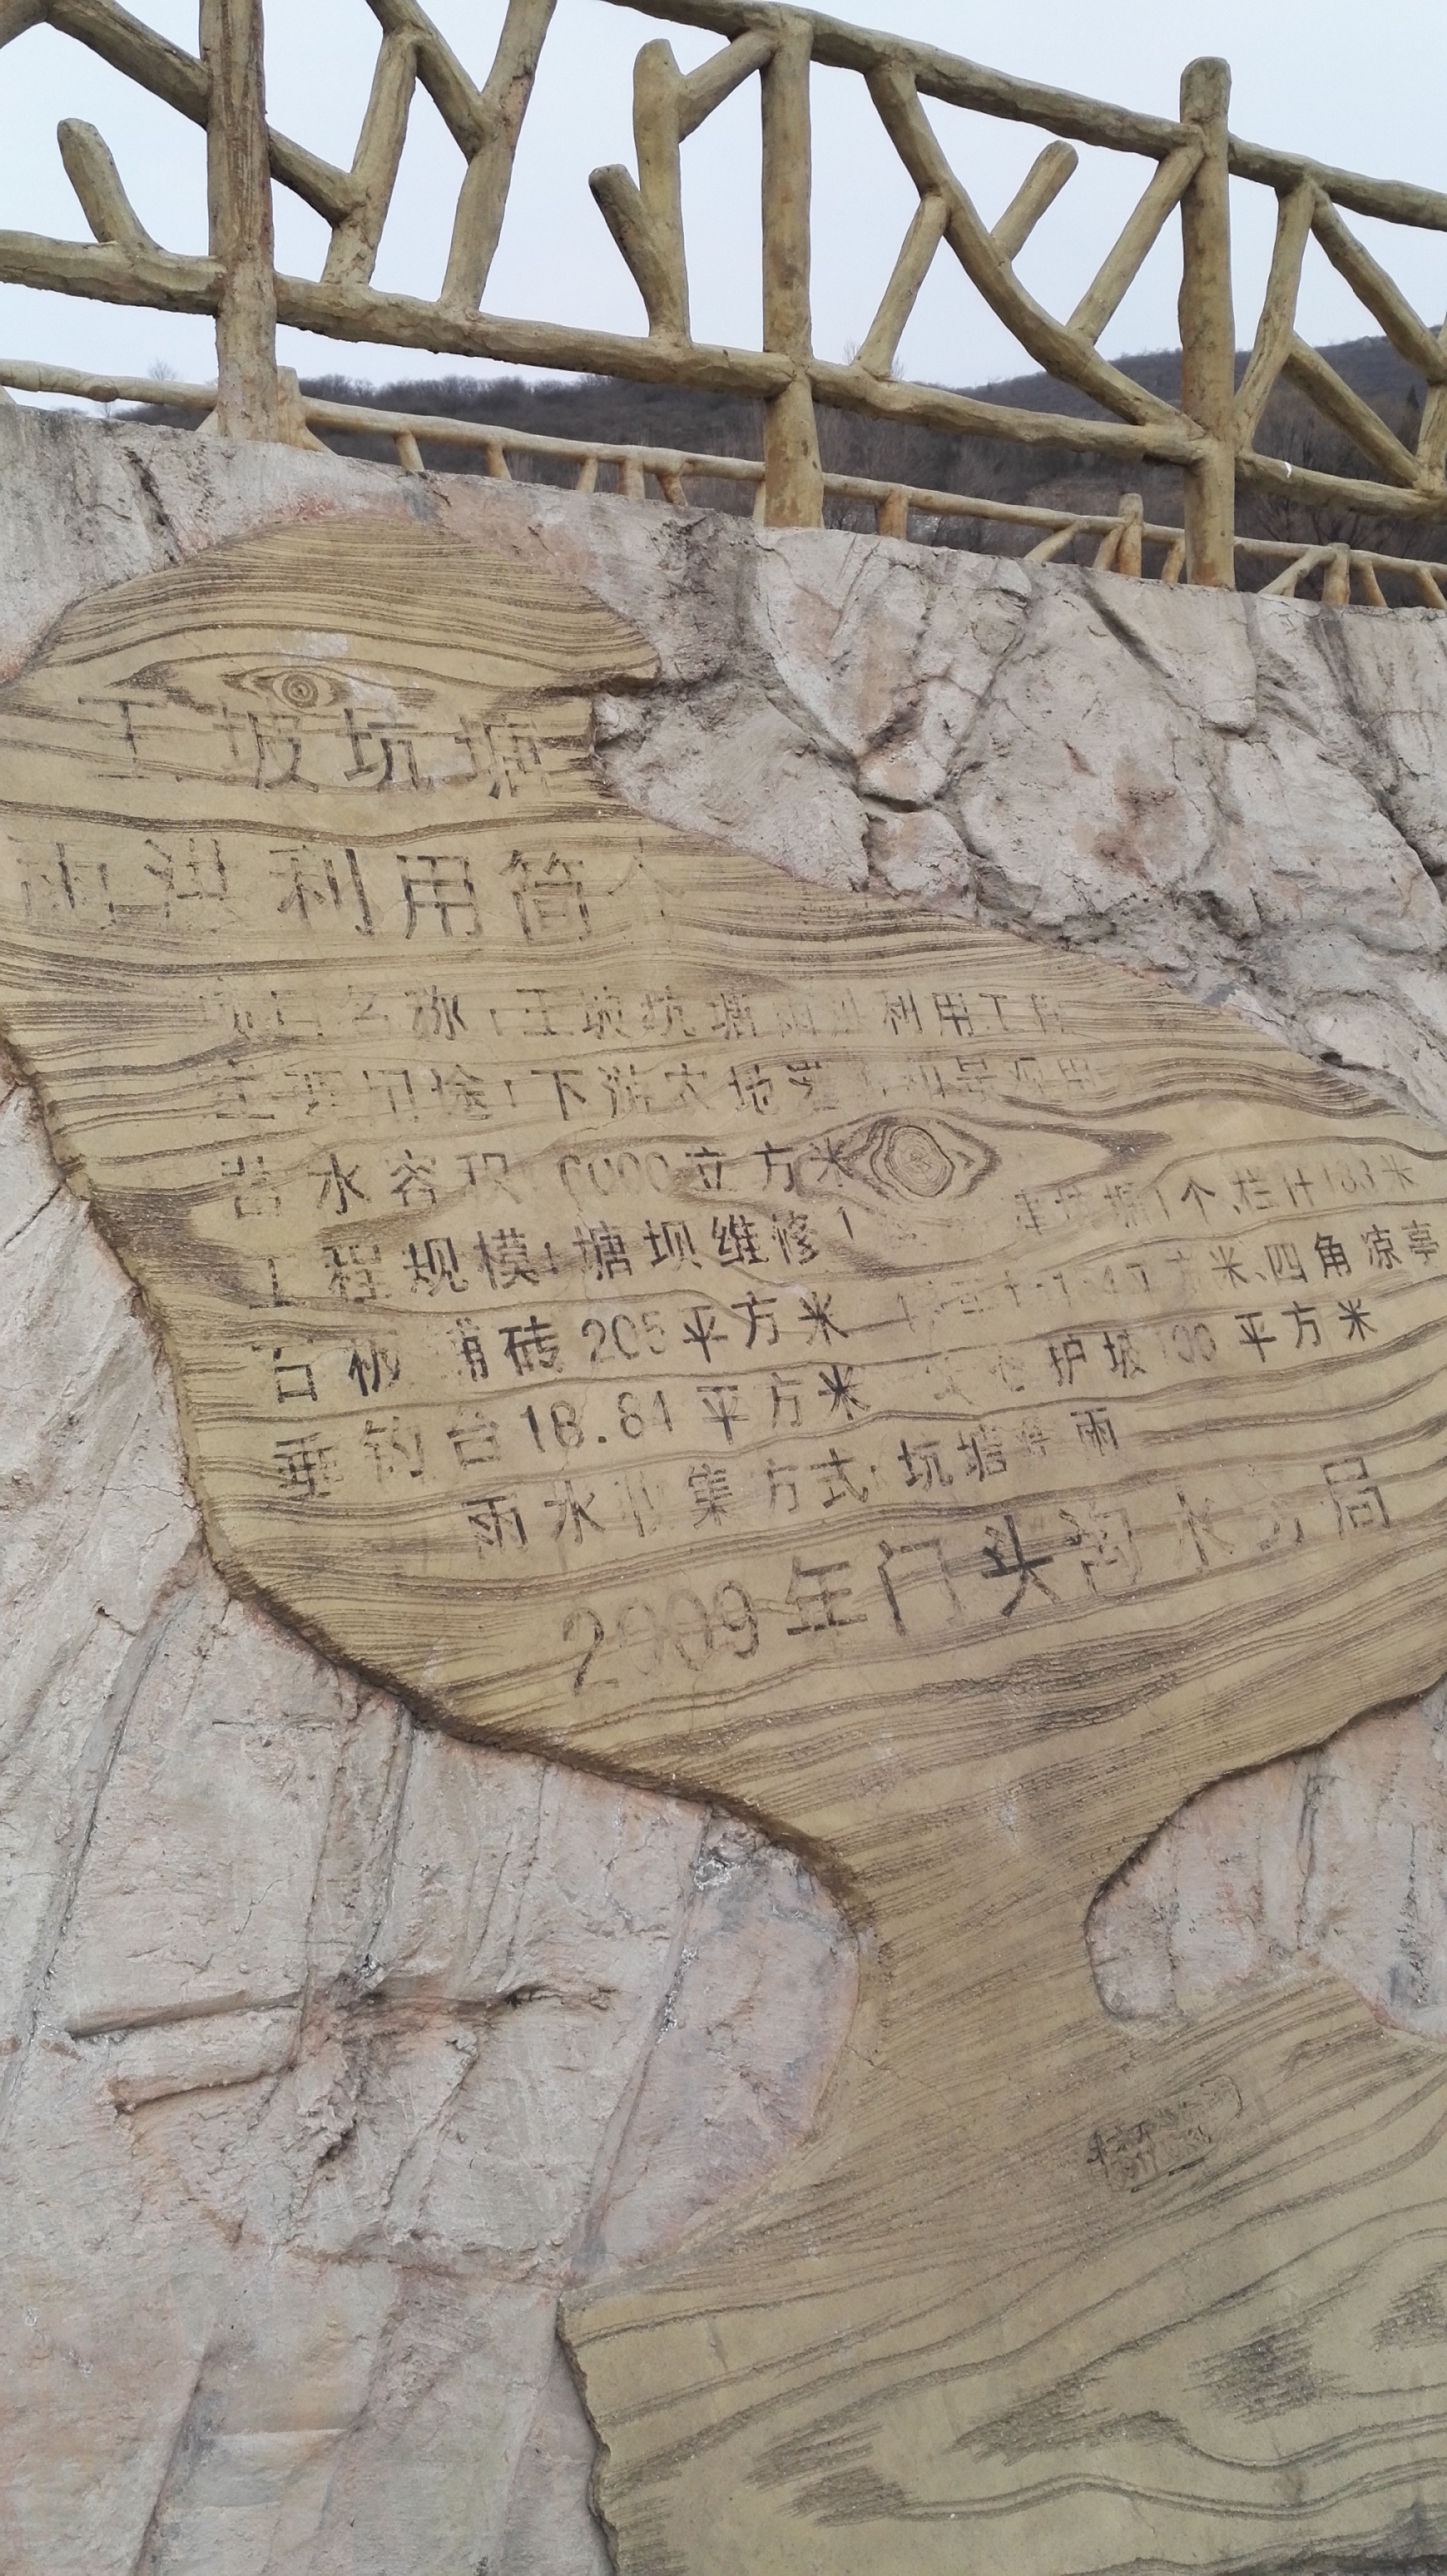 王坡坑塘
雨洪利用简介
项目名称：王坡坑塘雨洪利用工程
主要用途：下游农地灌 和景观用
蓄水容积：6000立方米
工程规模：塘坝维修1 坑塘1个、栏杆183米
石板铺砖205平方米 方米、四角凉亭
垂钓台18.84平方米 护坡100平方米
雨水收集方式：坑塘 雨
2009年门头沟水务局